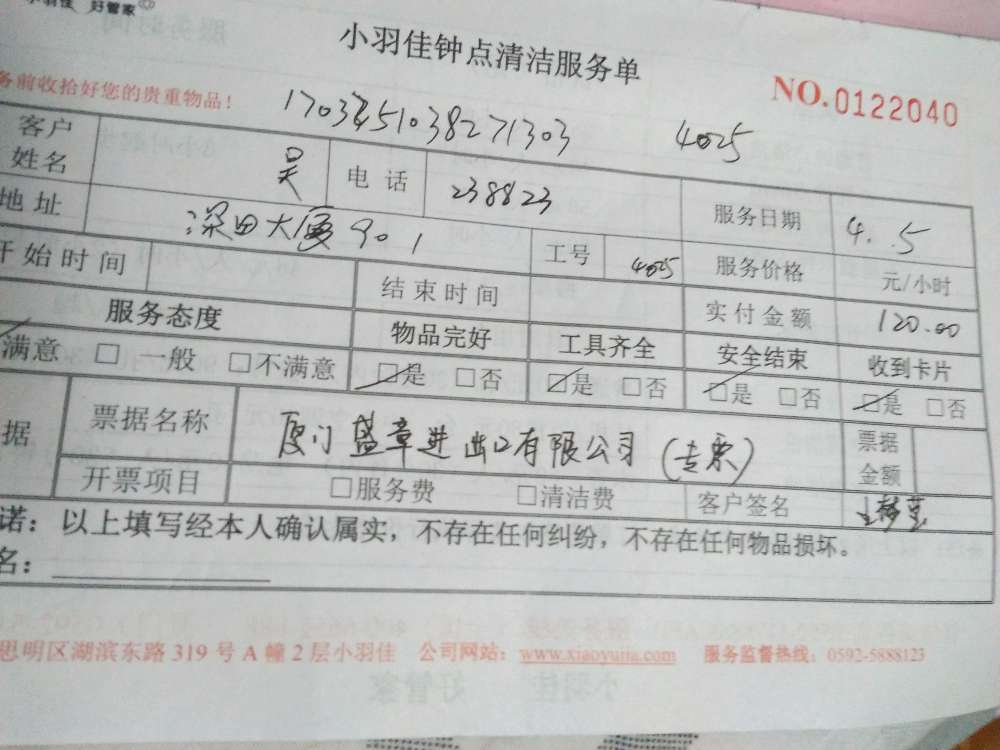 小羽佳 好管家
小羽佳钟点清洁服务单
务前收拾好您的贵重物品！ NO.0122040
4025
客户姓名 吴 电话 238823 服务日期 4.5
地址 深田大厦901 工号 4025 服务价格 元/小时
开始时间 结束时间 实付金额 120.00
服务态度 物品完好 工具齐全 安全结束 收到卡片
满意 □一般 □不满意 □是 □否 □是 □否 □是 □否 □是 □否
据 票据名称 厦门盛章进出口有限公司（专票） 票据金额
开票项目 □服务费 □清洁费 客户签名
诺：以上填写经本人确认属实，不存在任何纠纷，不存在任何物品损坏。
名：
思明区湖滨东路319号A幢2层小羽佳 公司网站：www.xiaoyujia.com 服务监督热线：0592-5888123